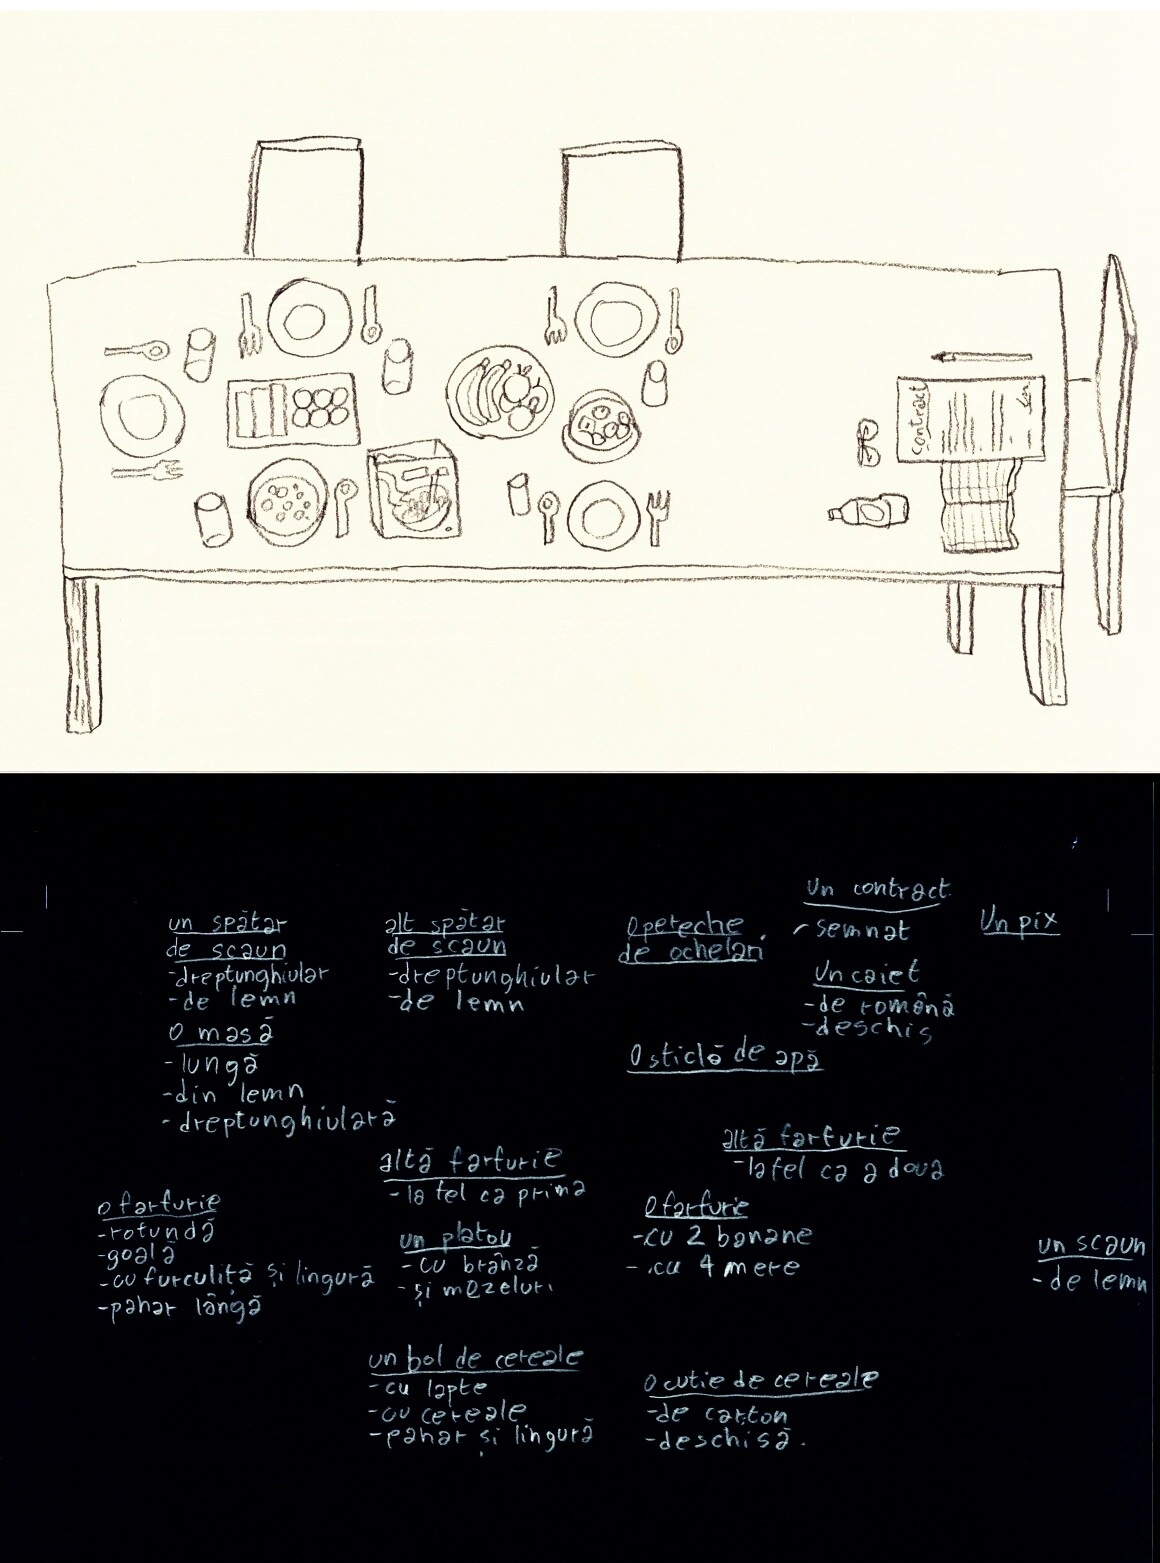 Contract
un spătar
de scaun
-dreptunghiular
-de lemn
o masă
-lungă
-din lemn
-dreptunghiulară
alt spătar
de scaun
-dreptunghiular
-de lemn
O pereche
de ochelari
Un contract
-semnat
Un pix
Un caiet
-de română
-deschis
O sticlă de apă
altă farfurie
-la fel ca a doua
altă farfurie
-la fel ca prima
o farfurie
-rotundă
-goală
-cu furculiță și lingură
-pahar lângă
un platou
-cu brânză
-și mezeluri
O farfurie
-cu 2 banane
-cu 4 mere
un scaun
-de lemn
un bol de cereale
-cu lapte
-cu cereale
-pahar și lingură
O cutie de cereale
-de carton
-deschisă.